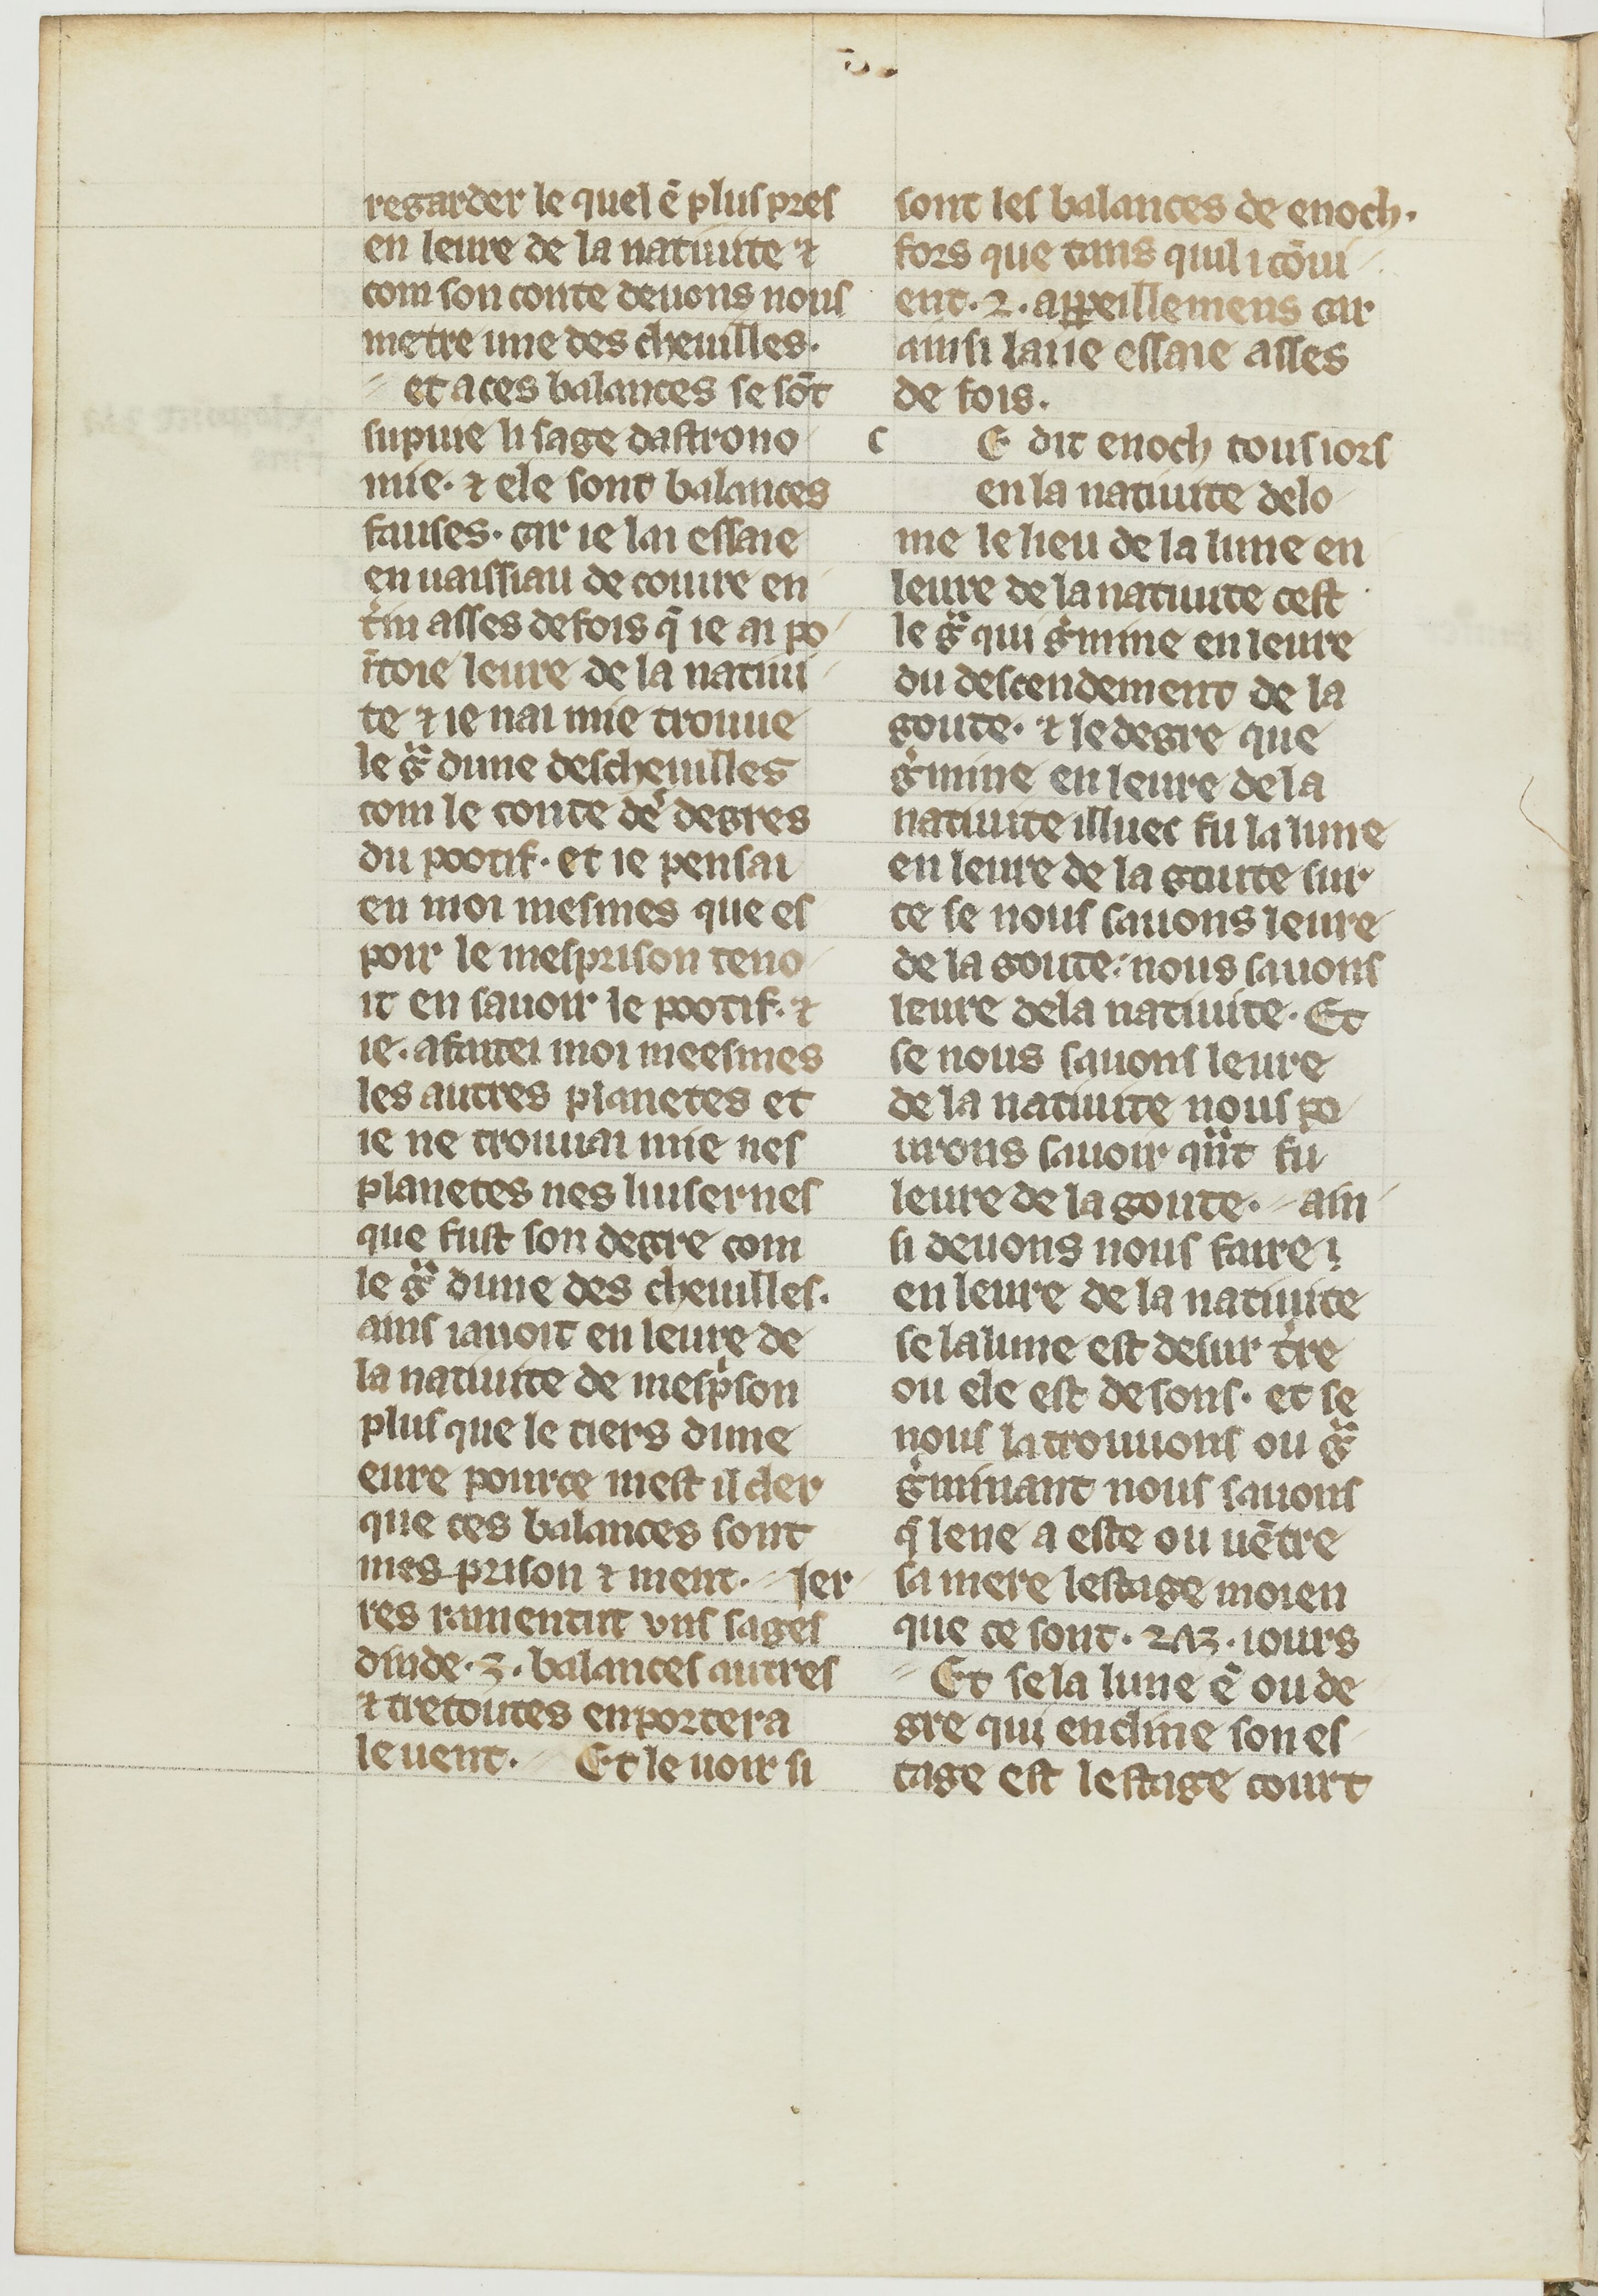 regarder le quel ẽ plus pres
en leure de la natiuite ⁊
com son conte deuons nous
metre une des cheuilles.
et a ces balances se sõt
supuie li sage dastrono
mie. ⁊ ele sont balances
fauses. car ie lai essaie
en uaissiau de couure en
asses de fois q̃ ie ai po
leure de la natiui
te ⁊ ie nai mie trouue
le gͣ dune des cheuilles
com le conte de degres
du pootif. et ie pensai
en moi mesmes que es
poir le mesprison teno
it en sauoir le pootif. ⁊
ie. afaitei moi meesmes
les autres planetes et
ie ne trouuai mie nes
planetes nes luisernes
que fust son degre com
le gͣ dune des cheuilles.
ains iauoit en leure de
la natiuite de mespͥson
plus que le tiers dune
eure pource mest il cler
que ces balances sont
mes prison ⁊ ment. Jer
res ramentiit vns sages
dinde .3. balances autres
⁊ tretoutes enportera
le uent. Et le uoir si
sont les balances de enoch.
fors que tans quil i cõui
ent .2. aꝑeillemens car
ainsi laue essaie asses
de fois.
c E dit enoch tous iors
en la natiuite delo
me le lieu de la lune en
leure de la natiuite cest
le gͣ qui gͥmine en leure
du descendement de la
goute. ⁊ le degre que
gͥmine en leure de la
natiuite illuec fu la lune
en leure de la goute sur
ce se nous sauons leure
de la goute: nous sauons
leure dela natiuite. Et
se nous sauons leure
de la natiuite nous po
urons sauoir qͣnt fu
leure de la goute. ain
si deuons nous faire i
en leure de la natiuite
se la lune est desur t̾re
ou ele est desous. et se
nous la trouuons ou gͣ
gͥminant nous sauons
q̃ lene a este ou uẽtre
sa mere lestage moien
que ce sont .273. iours
Et se la lune ẽ ou de
gre qui encline son es
tage est lestage court